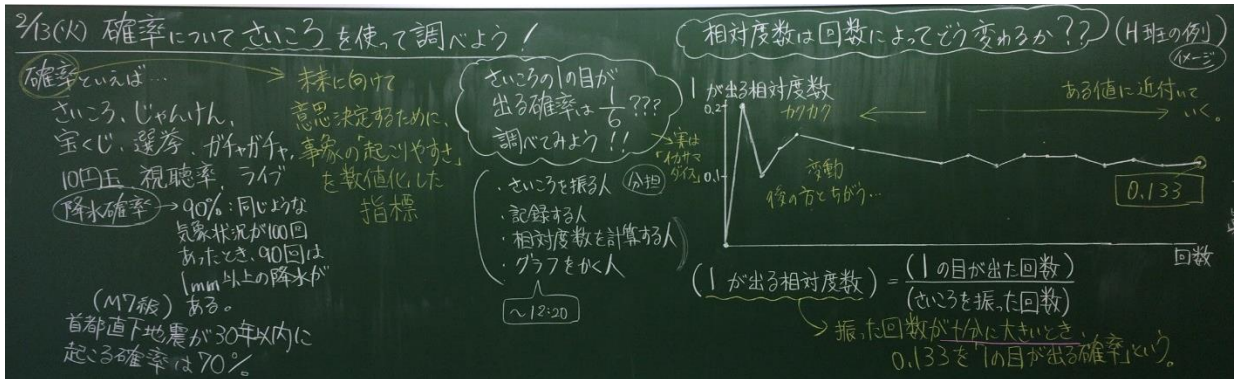 2/13(火) 確率について さいころ を使って調べよう!
確率といえば…
さいころ、じゃんけん、
宝くじ、選挙、ガチャガチャ、
10円玉 視聴率、ライブ
降水確率→90%:同じような
気象状況が100回
あったとき、90回は
1mm以上の降水が
ある。
(M7級)
首都直下地震が30年以内に
起こる確率は70%。
未来に向けて
意思決定するために、
事象の「起こりやすさ」
を数値化した
指標
さいころの1の目が
出る確率は 1/6 ???
調べてみよう!!
→実は
「イカサマ
ダイス」
・さいころを振る人 分担
・記録する人
・相対度数を計算する人
・グラフをかく人
~12:20
相対度数は回数によってどう変わるか?? (H班の例)
イメージ
1が出る相対度数
0.2
0.1
カクカク
変動
後の方とちがう…
ある値に近付いて
いく。
0.133
回数
(1が出る相対度数) = (1の目が出た回数)/(さいころを振った回数)
→振った回数が十分に大きいとき、
0.133を「1の目が出る確率」という。